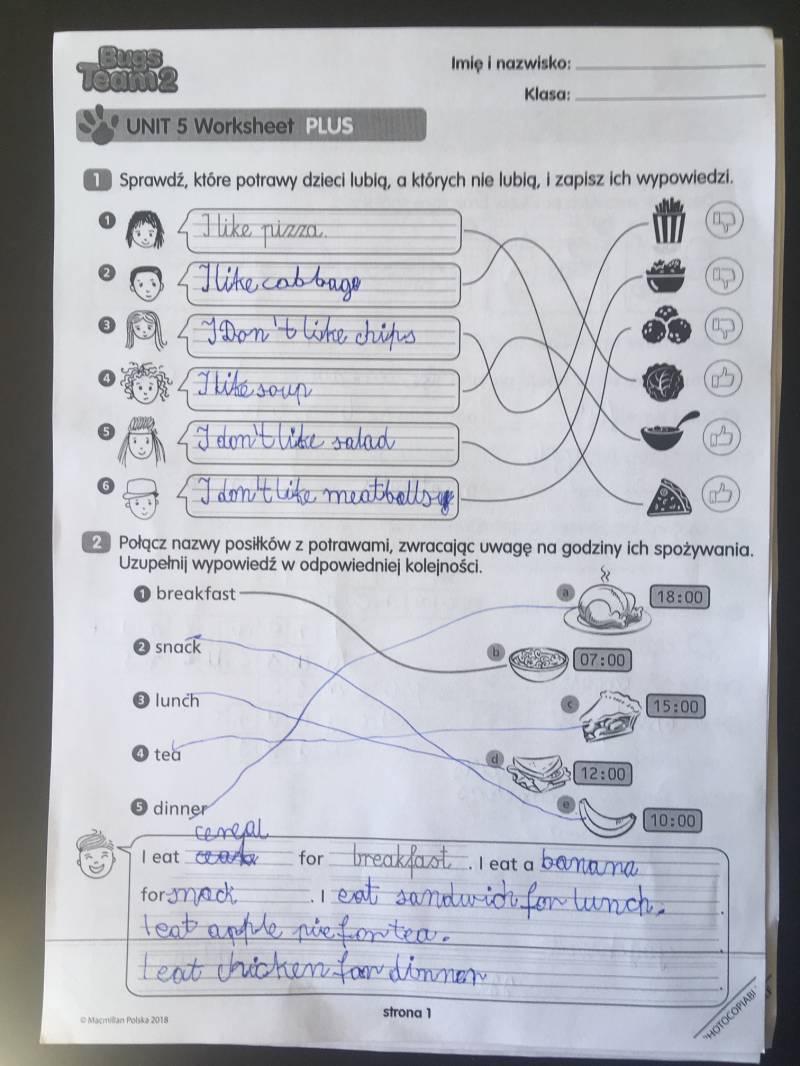 Bugs
Team 2
Imię i nazwisko:
Klasa:
UNIT 5 Worksheet PLUS
1 Sprawdź, które potrawy dzieci lubią, a których nie lubią, i zapisz ich wypowiedzi.
1 I like pizza.
2 I like cabbage
3 I Don't like chips
4 I like soup
5 I don't like salad
6 I don't like meatballs
2 Połącz nazwy posiłków z potrawami, zwracając uwagę na godziny ich spożywania.
Uzupełnij wypowiedź w odpowiedniej kolejności.
1 breakfast
a 18:00
2 snack
b 07:00
3 lunch
c 15:00
4 tea
d 12:00
5 dinner
e 10:00
cereal
I eat for breakfast. I eat a banana
for snack. I eat sandwich for lunch.
I eat apple pie for tea.
I eat chicken for dinner
© Macmillan Polska 2018
strona 1